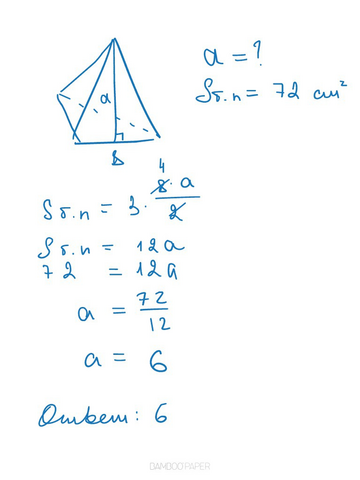 a = ?
Sб.п = 72 см²
a
8
Sб.п = 3 · 8⁴ · a / 2
Sб.п = 12a
72 = 12a
a = 72/12
a = 6
Ответ: 6
BAMBOO PAPER